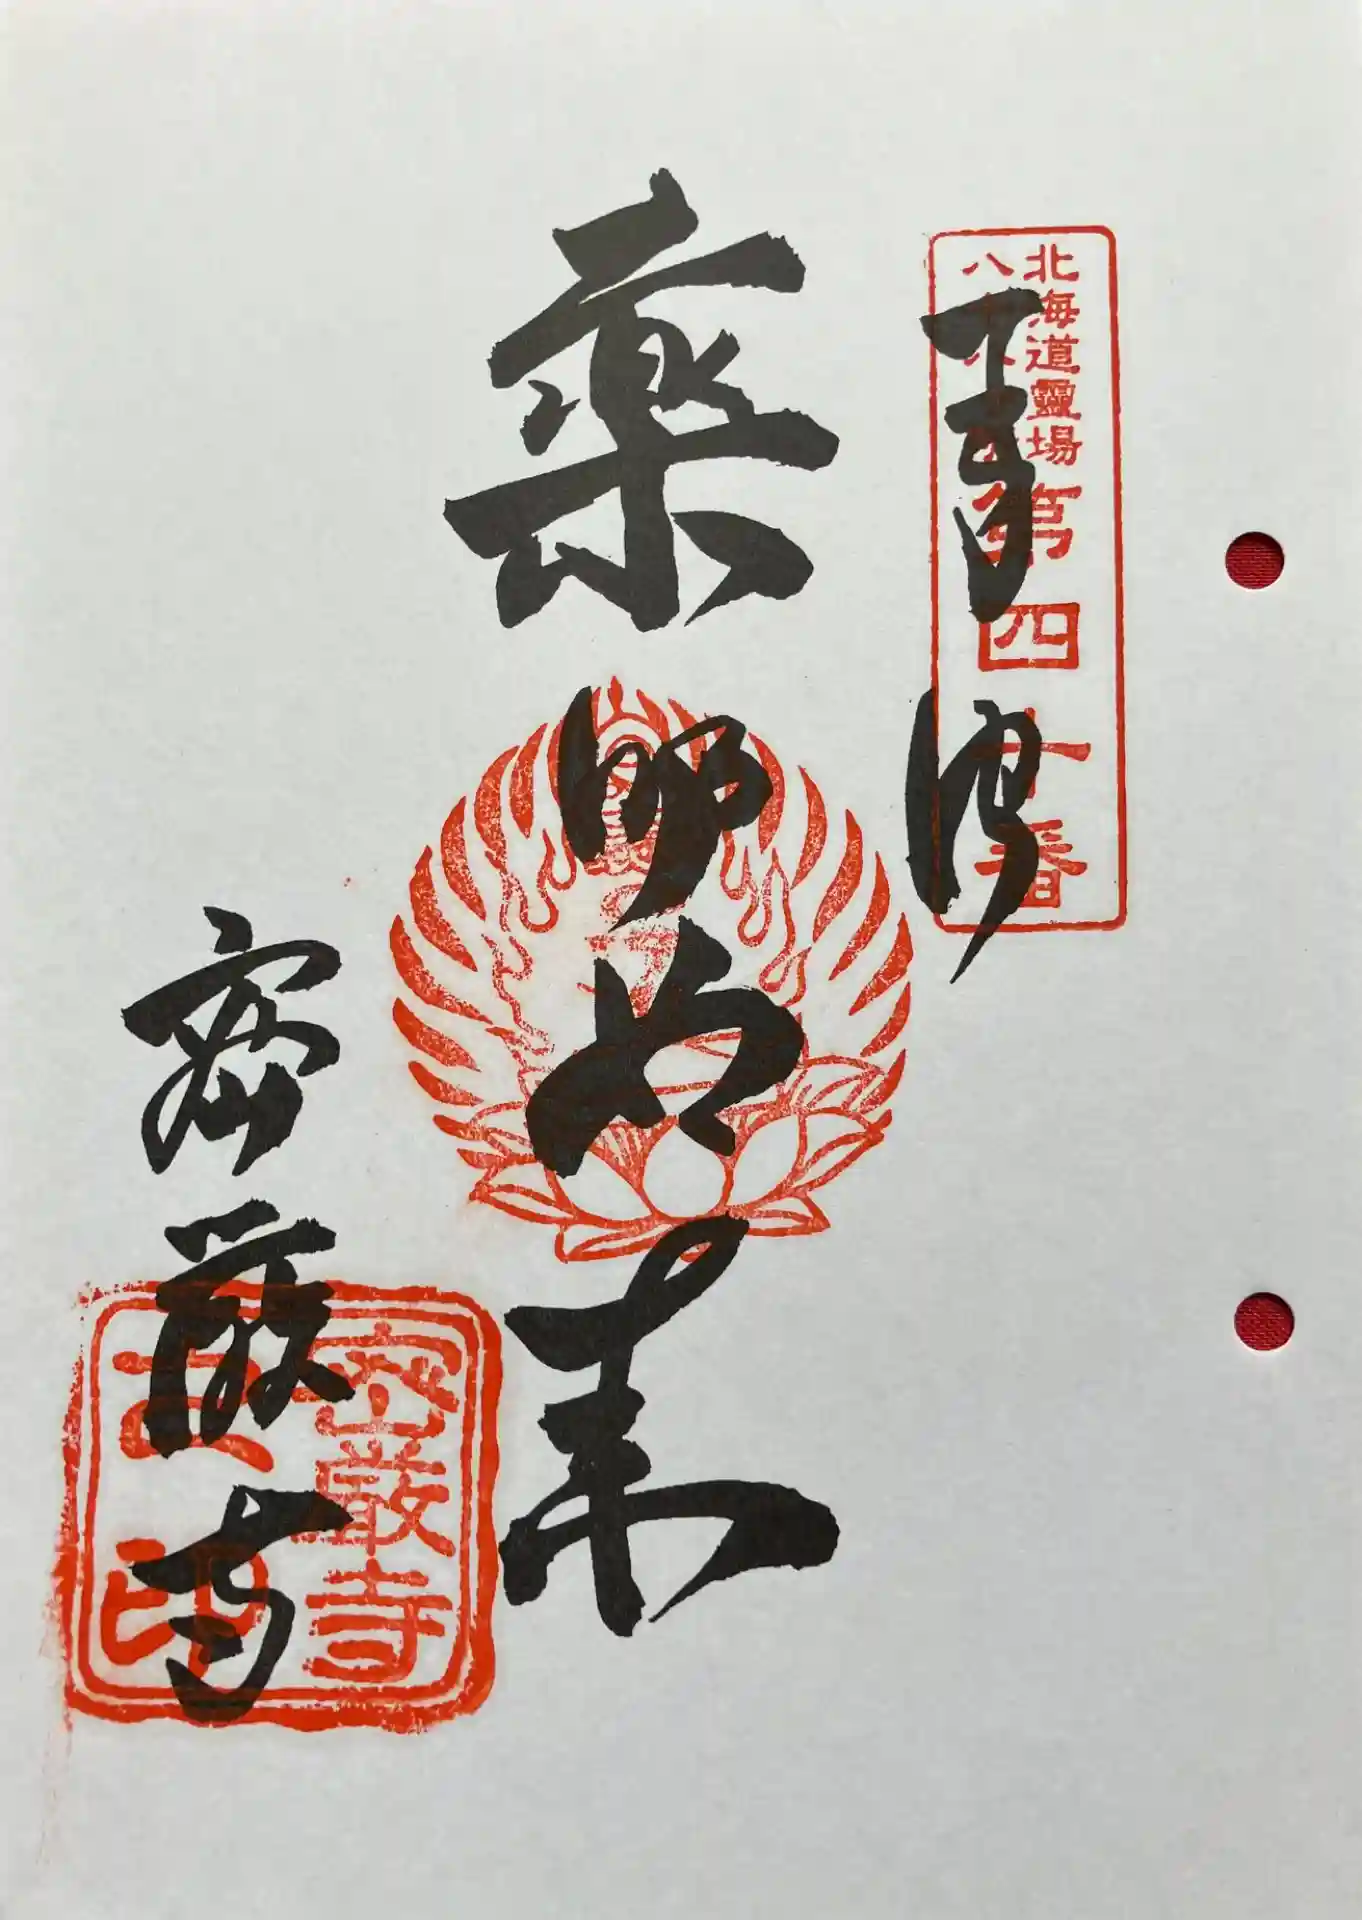 北海道靈場
八十八ヶ所
第四十番
奉拝
薬師如来
密厳寺
密巌寺
之印